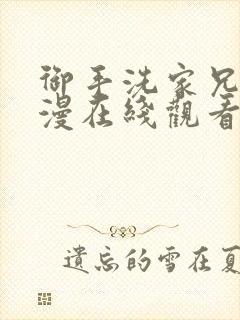 御手洗家兄
漫在綫觀看
遺忘的雪在夏